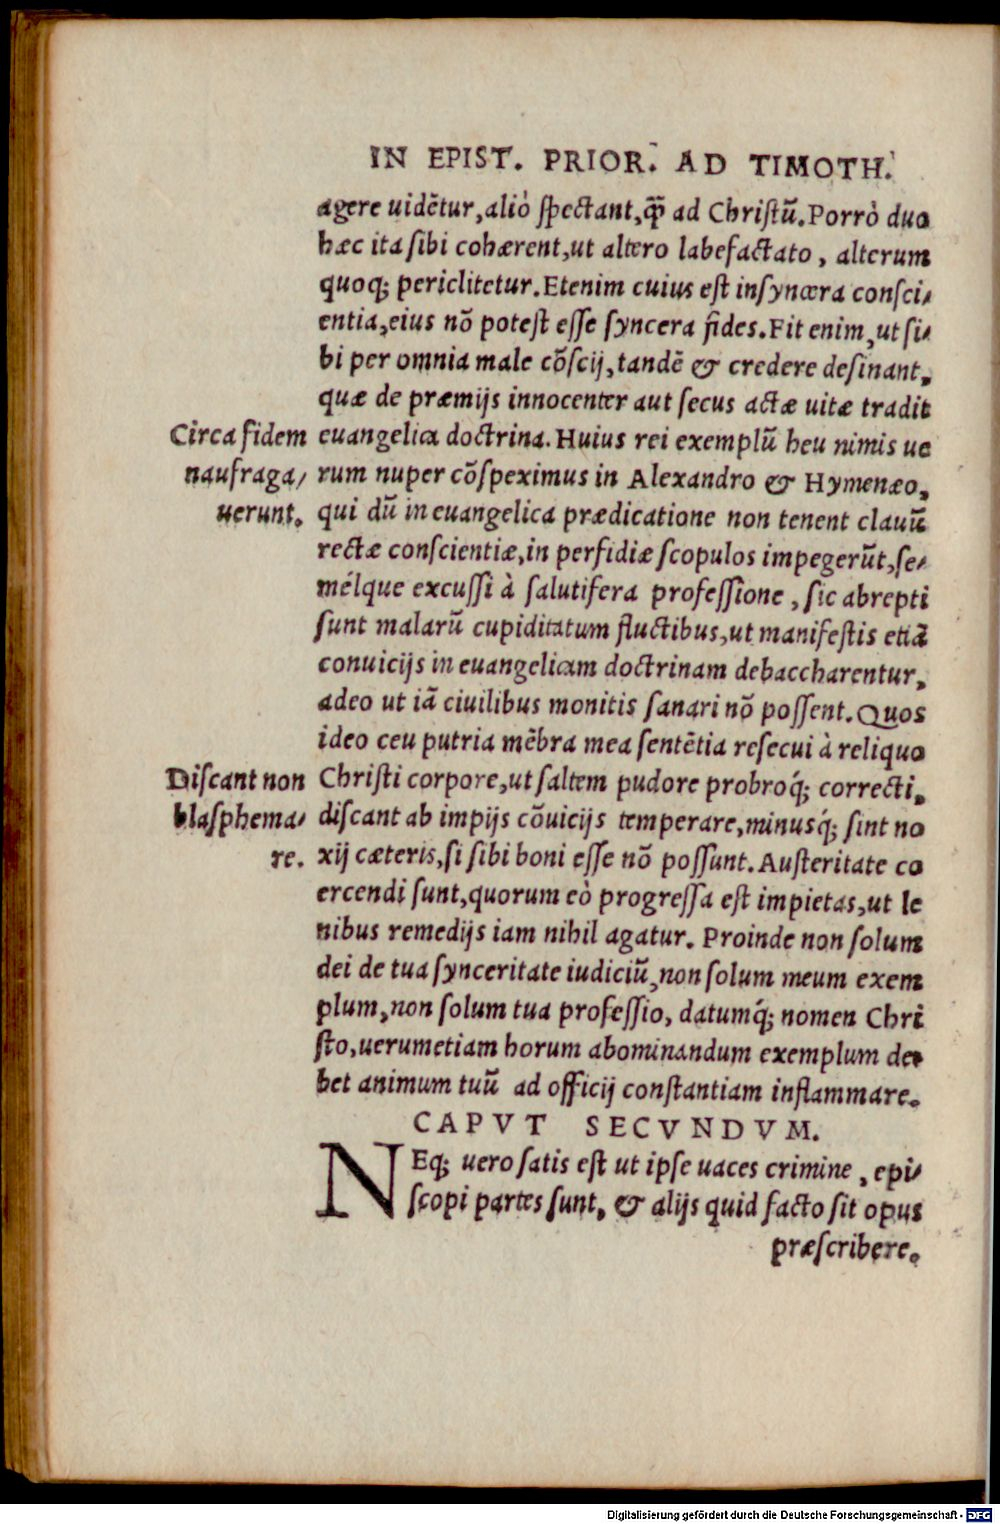 IN EPIST. PRIOR. AD TIMOTH.
agere uidẽtur, aliò ſpectant, q̃ ad Chriſtũ. Porrò duo
hæc ita ſibi cohærent, ut altero labefactato, alterum
quoq; periclitetur. Etenim cuius eſt inſyncera conſci/
entia, eius nõ poteſt eſſe ſyncera fides. Fit enim, ut ſi/
bi per omnia male cõſcij, tandẽ & credere deſinant,
quæ de præmijs innocenter aut ſecus actæ uitæ tradit
Circa fidem
naufraga/
uerunt.
euangelica doctrina. Huius rei exemplũ heu nimis ue
rum nuper cõſpeximus in Alexandro & Hymenæo,
qui dũ in euangelica prædicatione non tenent clauũ
rectæ conſcientiæ, in perfidiæ ſcopulos impegerũt, ſe/
mélque excuſſi à ſalutifera profeſſione, ſic abrepti
ſunt malarũ cupiditatum fluctibus, ut manifeſtis etiã
conuicijs in euangelicam doctrinam debaccharentur,
adeo ut iã ciuilibus monitis ſanari nõ poſſent. Quos
ideo ceu putria mẽbra mea ſentẽtia reſecui à reliquo
Diſcant non
blaſphema/
re.
Chriſti corpore, ut ſaltem pudore probroq́; correcti,
diſcant ab impijs cõuicijs temperare, minusq́; ſint no
xij cæteris, ſi ſibi boni eſſe nõ poſſunt. Auſteritate co
ercendi ſunt, quorum eò progreſſa eſt impietas, ut le
nibus remedijs iam nihil agatur. Proinde non ſolum
dei de tua ſynceritate iudiciũ, non ſolum meum exem
plum, non ſolum tua profeſſio, datumq́; nomen Chri
ſto, uerumetiam horum abominandum exemplum de/
bet animum tuũ ad officij conſtantiam inflammare.
CAPVT SECVNDVM.
NEq; uero ſatis eſt ut ipſe uaces crimine, epi/
ſcopi partes ſunt, & alijs quid facto ſit opus
præſcribere.
Digitalisierung gefördert durch die Deutsche Forschungsgemeinschaft - DFG